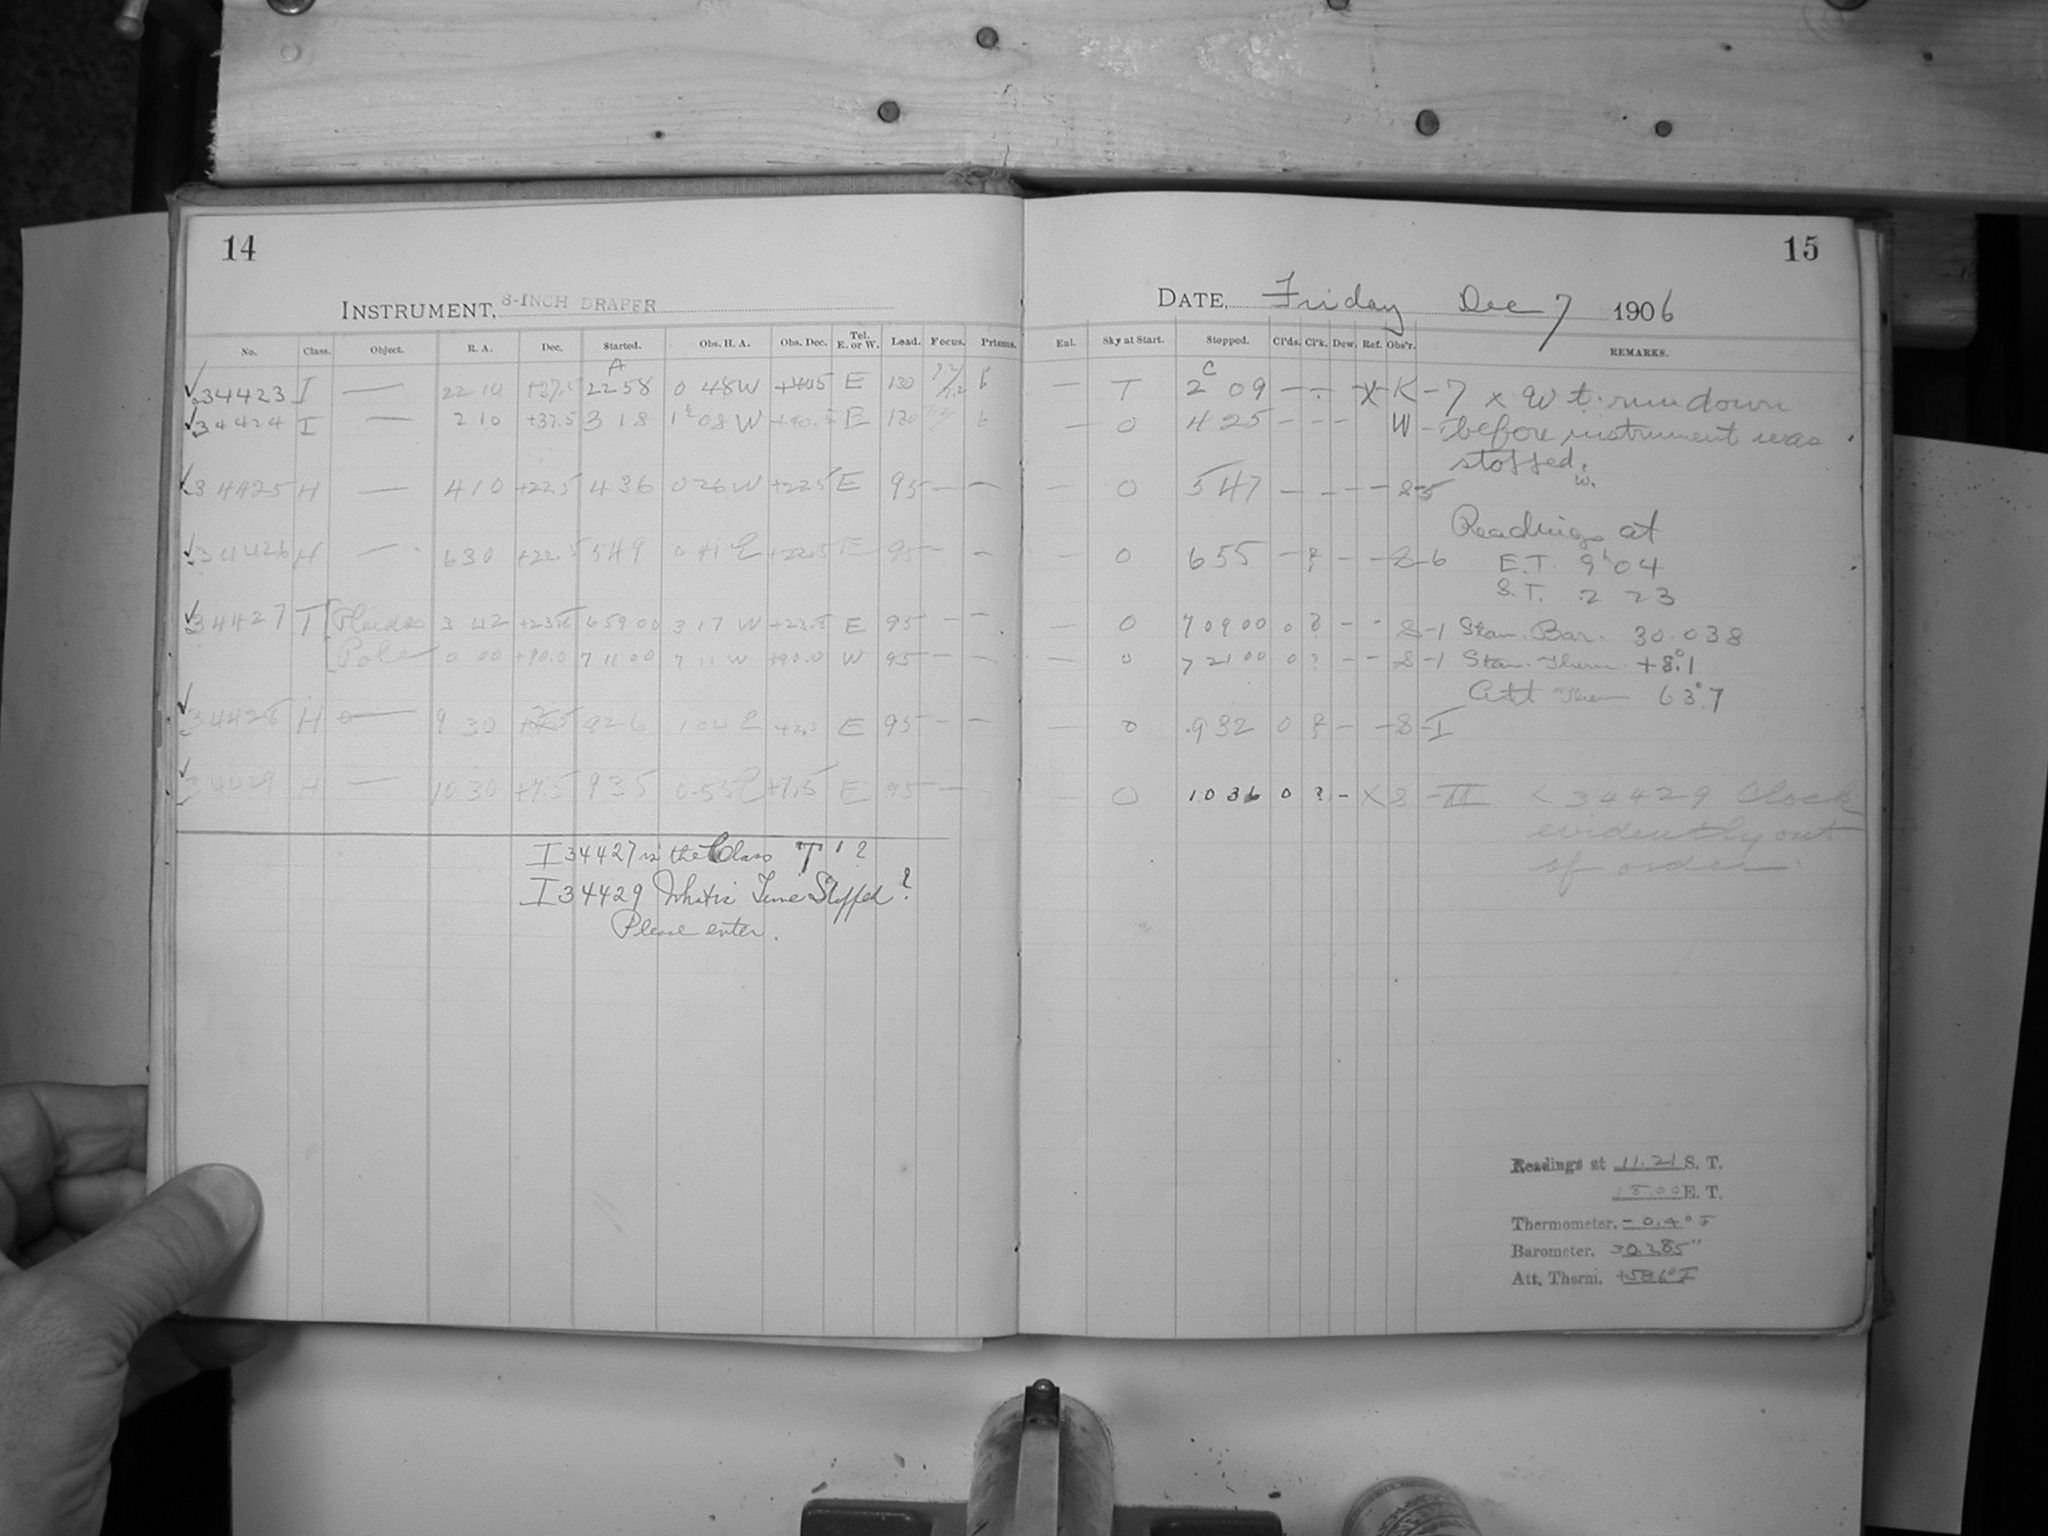 14
INSTRUMENT, 8-INCH DRAPER
No. Class. Object. R. A. Dec. Started. Obs. H. A. Obs. Dec. Tel. E. or W. Load. Focus. Prisms.
A
34423 I — 22 10 2258 0 48 W E 130
34424 I — 2 10 +37.5 3 18 1 08 W E 130 6
34425 H — 4 10 +22.5 4 36 0 26 W +22.5 E 95 — —
34426 H — 6 30 +22.5 5 49 0 41 E +22.5 E 95 — —
34427 T Pleiades 3 42 +23.8 6 59 00 3 17 W +23.8 E 95 — —
Pole 0 00 +90.0 7 11 00 7 11 W +90.0 W 95 — —
34428 H — 9 30 8 26 1 04 E E 95 — —
34429 H — 10 30 +7.5 9 35 0.55 E +7.5 E 95 —
I 34427 is the Class T 1?
I 34429 What is Time Stopped?
Please enter.
15
DATE, Friday Dec 7 1906
Enl. Sky at Start. Stopped. Cl'ds. Cl'k. Dew. Ref. Obs'r. REMARKS.
C
— T 2 09 — — X K — 7 x Wt. run down
— 0 4 25 — — — W — before instrument was
stopped.
W.
— 0 5 47 — — — — S-5
Readings at
— 0 6 55 — ? — — S-6 E.T. 9h 04
S.T. 2 23
— 0 7 09 00 0 ? — — S-1 Stan. Bar. 30.038
— 0 7 21 00 0 ? — — S-1 Stan. Therm +8°.1
Att Ther 63°.7
— 0 9 32 0 ? — — S-I
— 0 10 36 0 ? — X S-II < 34429 Clock
evidently out
of order.
Readings at 11.21 S. T.
E. T.
Thermometer. -0.4° F
Barometer. 30.285"
Att. Therm.